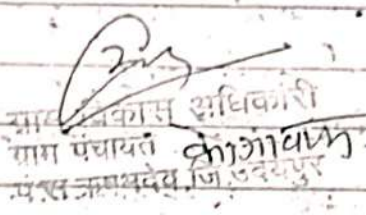 ग्राम विकास अधिकारी
ग्राम पंचायत कागावण
पं.स. ऋषभदेव, जि. उदयपुर